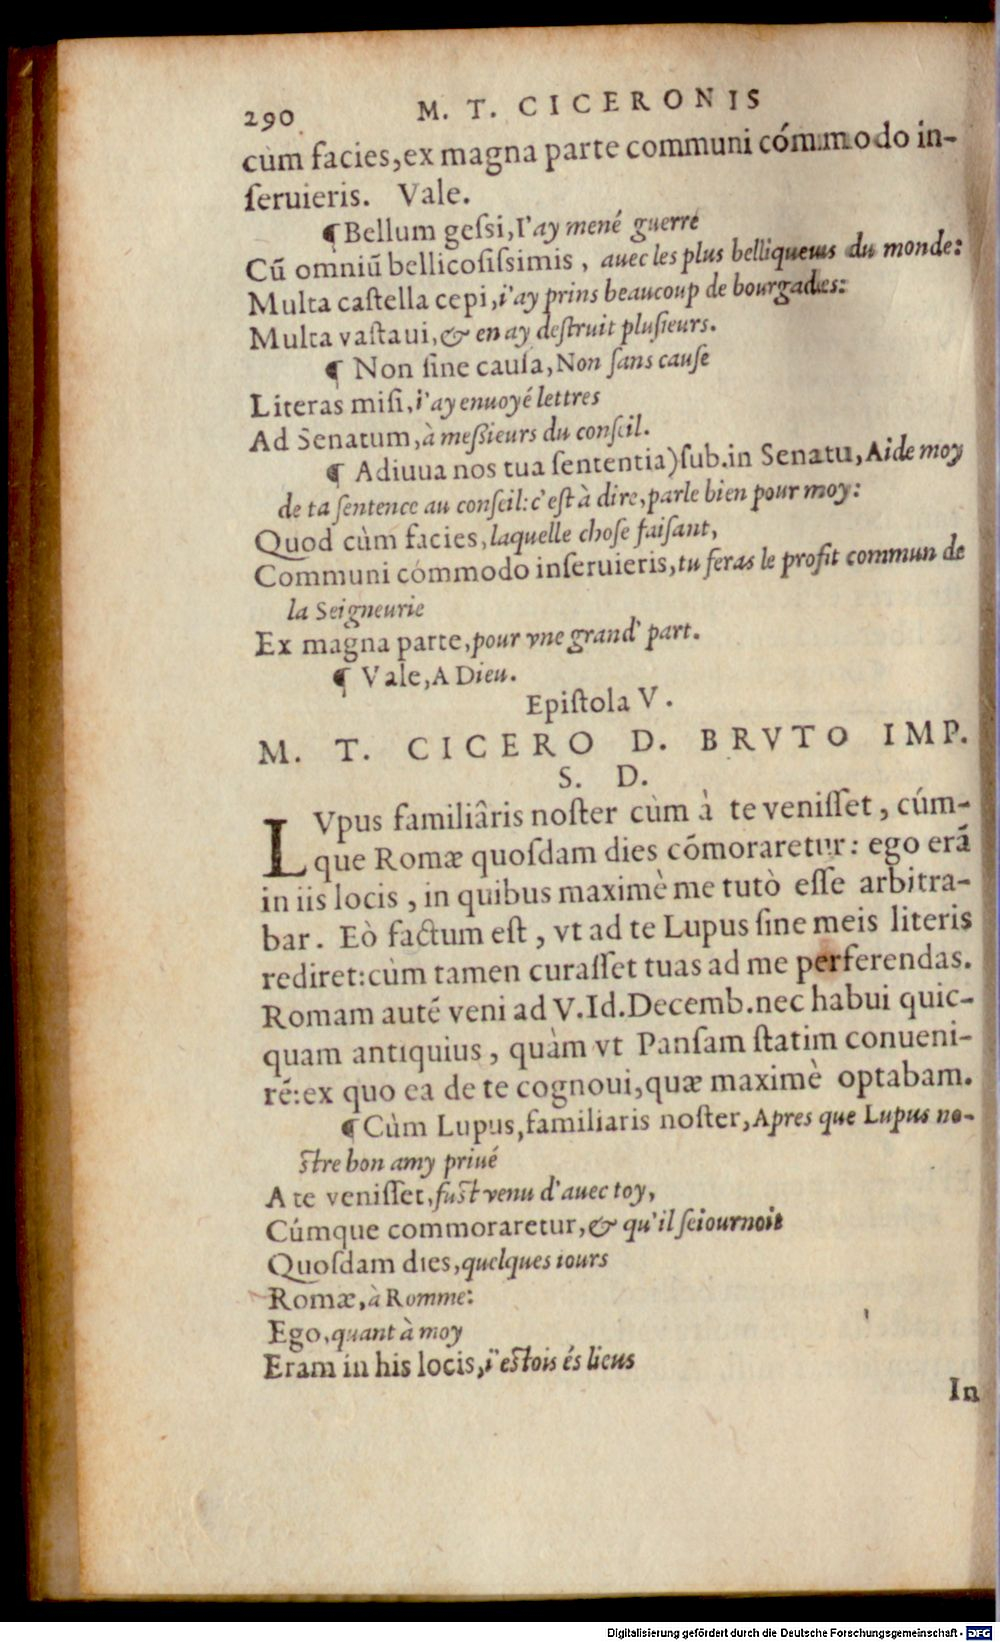 290 M. T. CICERONIS
cùm facies, ex magna parte communi cómmodo in-
ſeruieris. Vale.
¶ Bellum geſsi, I'ay mené guerre
Cū omniū bellicoſiſsimis, auec les plus belliqueus du monde:
Multa caſtella cepi, i'ay prins beaucoup de bourgades:
Multa vaſtaui, & en ay deſtruit pluſieurs.
¶ Non ſine cauſa, Non ſans cauſe
Literas miſi, i'ay enuoyé lettres
Ad Senatum, à meſsieurs du conſeil.
¶ Adiuua nos tua ſententia) ſub. in Senatu, Aide moy
de ta ſentence au conſeil: c'eſt à dire, parle bien pour moy:
Quod cùm facies, laquelle choſe faiſant,
Communi cómmodo inſeruieris, tu feras le profit commun de
la Seigneurie
Ex magna parte, pour vne grand' part.
¶ Vale, A Dieu.
Epiſtola V.
M. T. CICERO D. BRVTO IMP.
S. D.
LVpus familiâris noſter cùm à te veniſſet, cúm-
que Romæ quoſdam dies cōmoraretur: ego erā
in iis locis, in quibus maximè me tutò eſſe arbitra-
bar. Eò factum eſt, vt ad te Lupus ſine meis literis
rediret: cùm tamen curaſſet tuas ad me perferendas.
Romam autē veni ad V. Id. Decemb. nec habui quic-
quam antiquius, quàm vt Panſam ſtatim conueni-
rē: ex quo ea de te cognoui, quæ maximè optabam.
¶ Cùm Lupus, familiaris noſter, Apres que Lupus no-
ſtre bon amy priué
A te veniſſet, fuſt venu d'auec toy,
Cúmque commoraretur, & qu'il ſeiournoit
Quoſdam dies, quelques iours
Romæ, à Romme:
Ego, quant à moy
Eram in his locis, i'eſtois és lieus
In
Digitalisierung gefördert durch die Deutsche Forschungsgemeinschaft - DFG